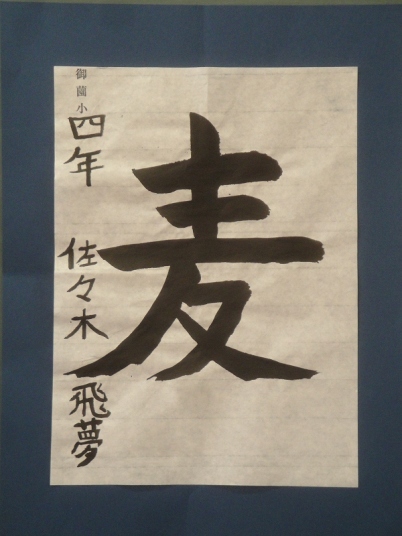 麦
御薗小
四年 佐々木 飛夢